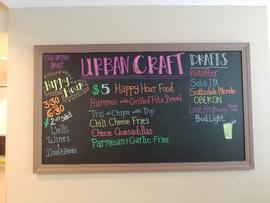 URBAN CRAFT
Happy Hour
3:30
6:30
$2 off
Wells
Wines
Draft Beers
$5 Happy Hour Food
Hummus with Grilled Pita Bread
Trio of Chips with Dip
Chili Cheese Fries
Cheese Quesadillas
Parmesan & Garlic Fries
DRAFTS
Kiltlifter
Solis IPA
Scottsdale Blonde
OBERON
Lost Highway
Bud Light